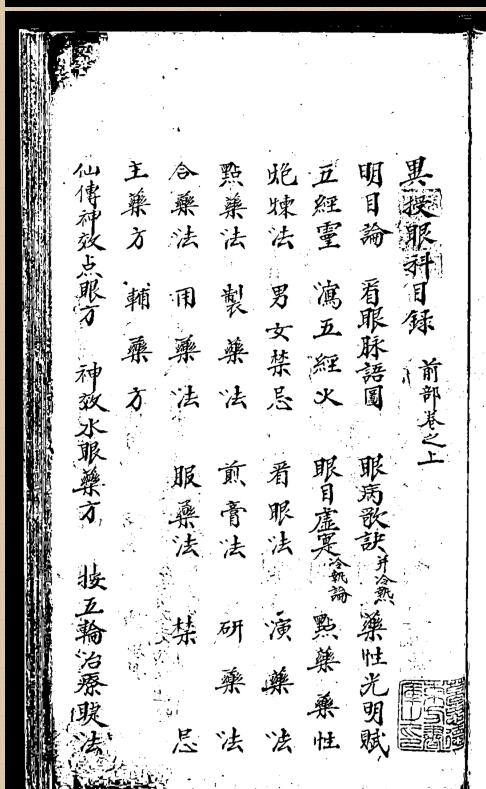 異授眼科目録 前部卷之上
明目論 看眼脉語圖 眼病歌訣并冷熱 藥性光明賦
五經靈 瀉五經火 眼目虛寔冷熱論 點藥藥性
炮煉法 男女禁忌 看眼法 演藥法
點藥法 製藥法 煎膏法 研藥法
合藥法 用藥法 服藥法 禁忌
主藥方 輔藥方
仙傳神效点眼方 神效水眼藥方 按五輪治療睫法